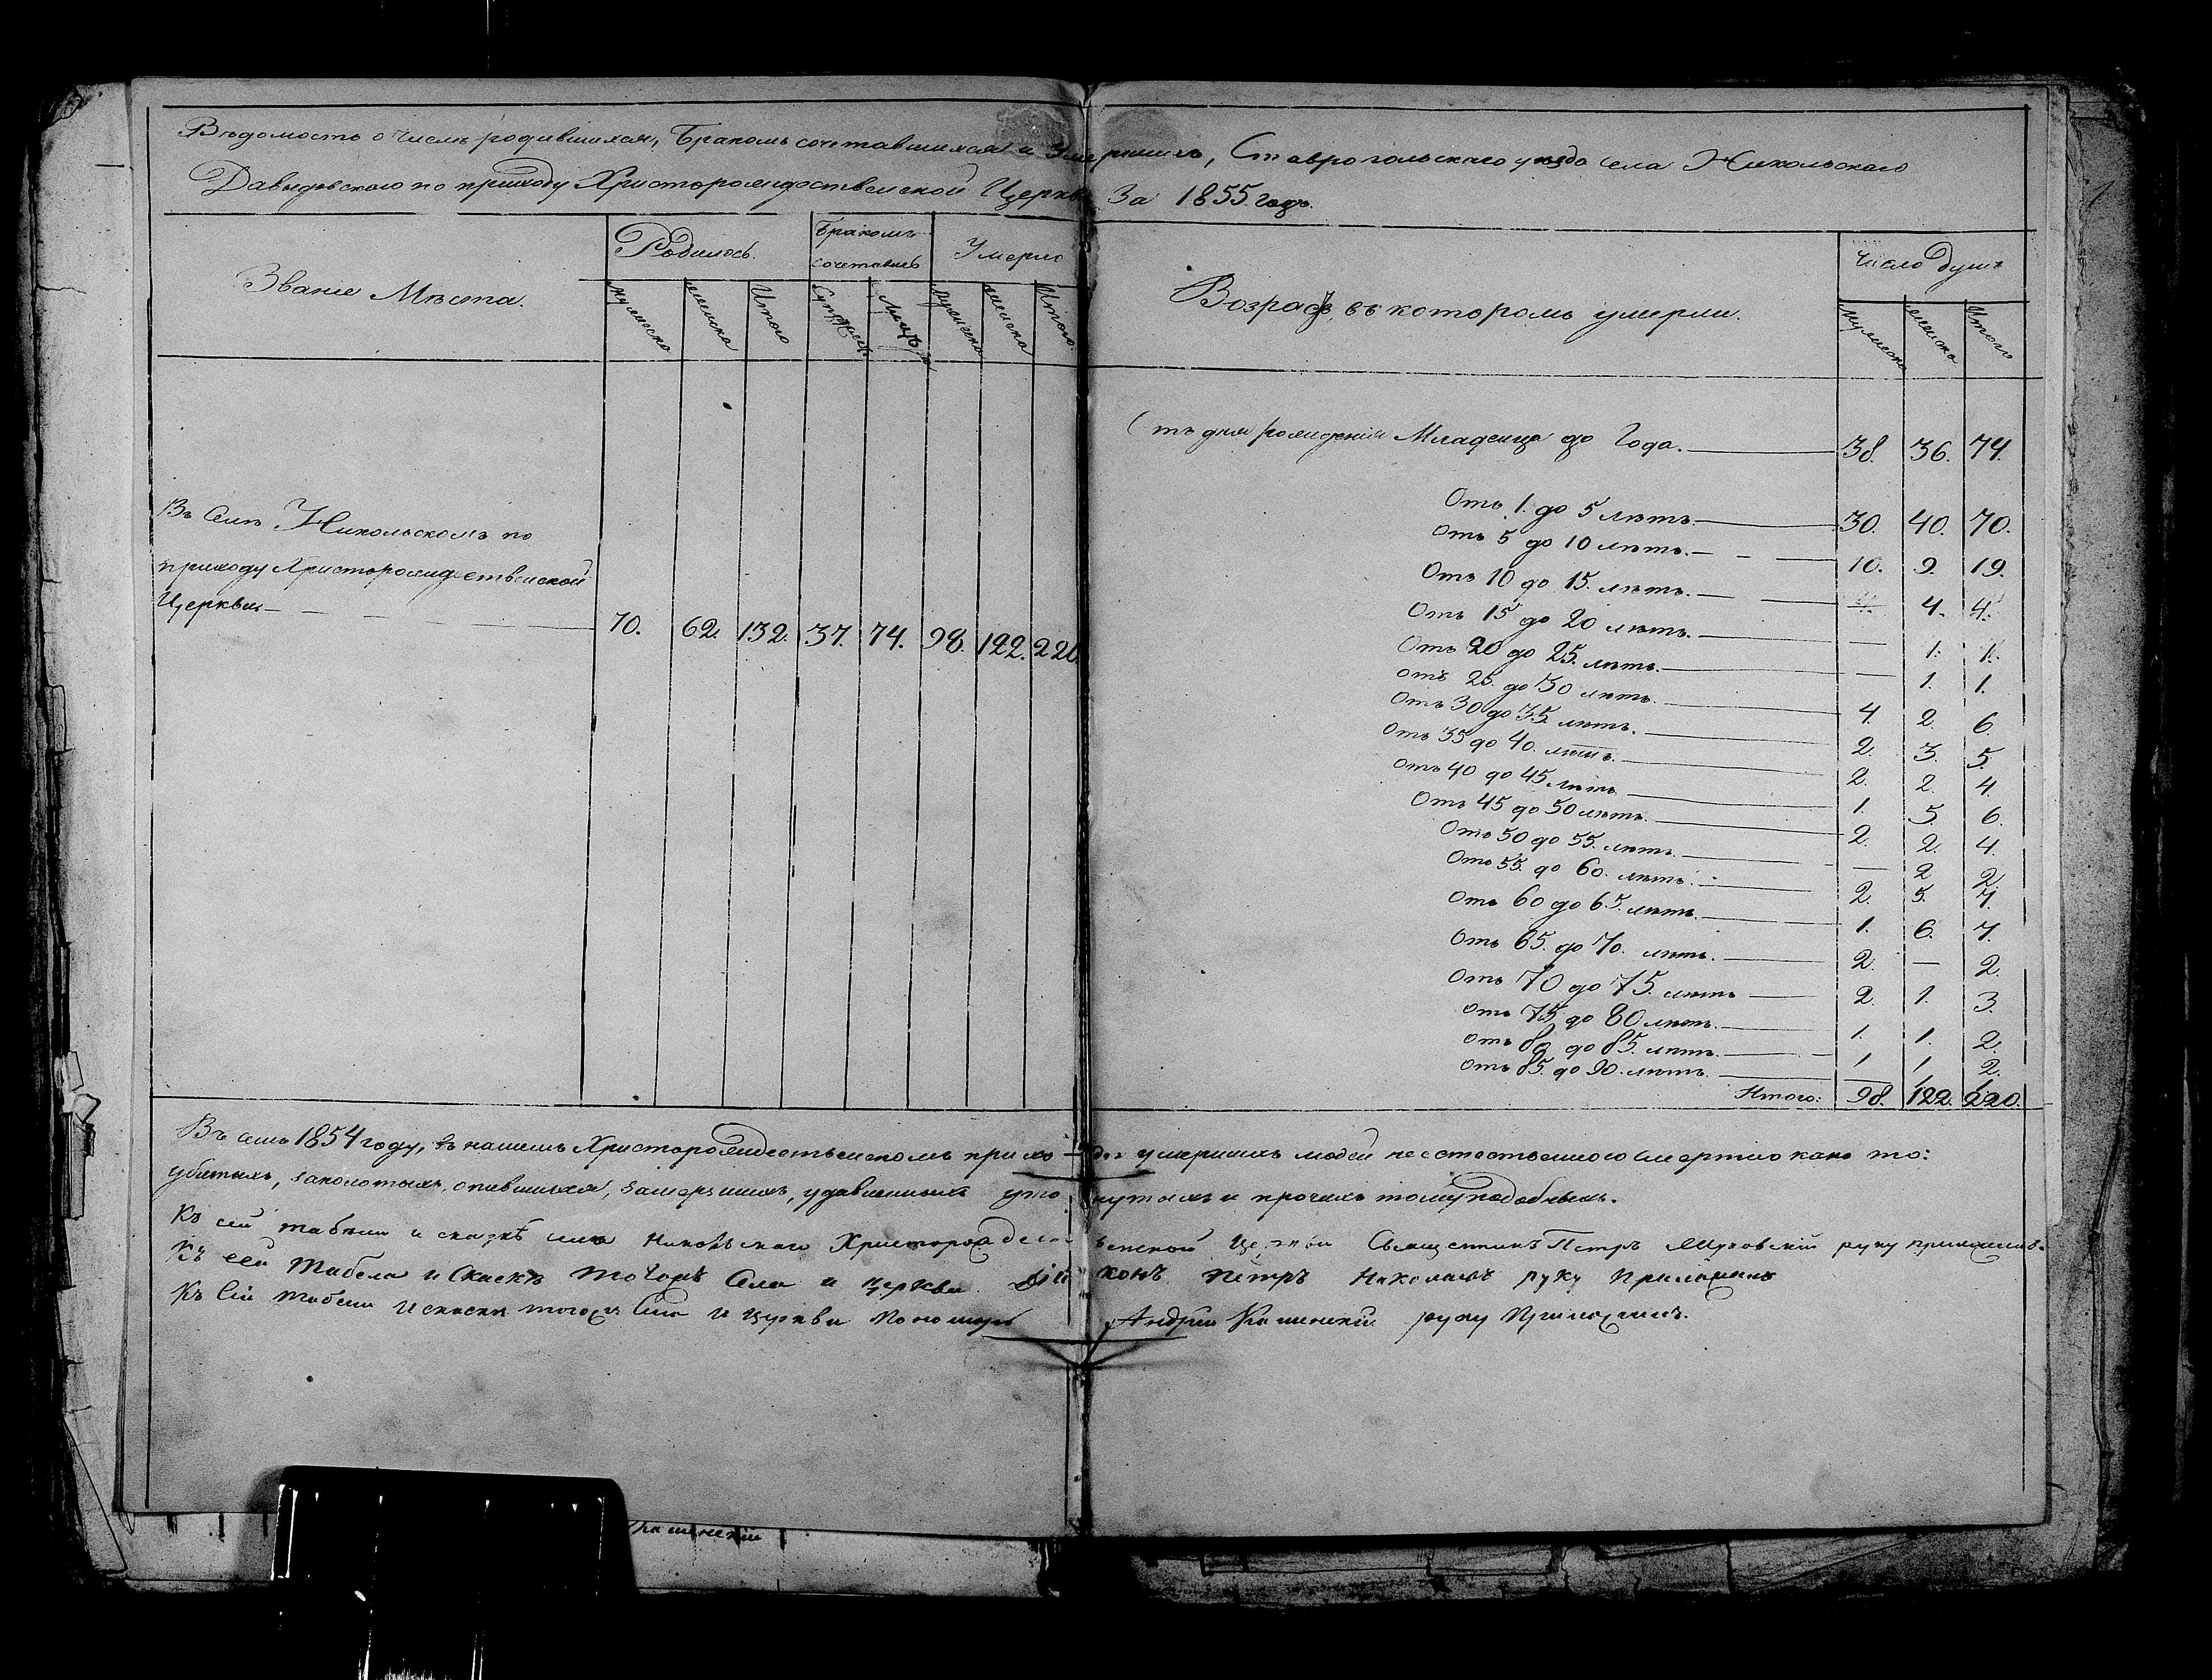 Вѣдомость о числѣ родившихся, Бракомъ сочетавшихся и Умершихъ, Ставропольскаго уѣзда села Никольскаго
Давыдовскаго по приходу Христорождественской Церкви За 1855. годъ.
Званіе Мѣста.
Родилось.
Бракомъ сочетались
Умерло
мужеска
женска
Итого
Супружествъ
Лицъ
мужеска
женска
Итого.
Возрастъ, въ которомъ умерли.
Число Душъ
мужеска
женска
Итого
Въ Селѣ Никольскомъ по
приходу Христорождественской
Церкви — 70. 62. 132. 37. 74. 98. 122. 220.
Отъ дня рожденія Младенца до Года. — 38. 36. 74.
Отъ 1. до 5 лѣтъ — 30. 40. 70.
Отъ 5 до 10 лѣтъ. — 10. 9. 19.
Отъ 10 до 15. лѣтъ. — 4. 4.
Отъ 15 до 20 лѣтъ. — 1. 1.
Отъ 20 до 25. лѣтъ. — 1. 1.
Отъ 25. до 30 лѣтъ. — 4. 2. 6.
Отъ 30 до 35. лѣтъ. — 2. 3. 5.
Отъ 35 до 40. лѣтъ. — 2. 2. 4.
Отъ 40 до 45 лѣтъ — 1. 5. 6.
Отъ 45 до 50 лѣтъ. — 2. 2. 4.
Отъ 50 до 55. лѣтъ. — 2 2.
Отъ 55. до 60. лѣтъ. — 2. 5. 7.
Отъ 60 до 65. лѣтъ. — 1. 6. 7.
Отъ 65. до 70. лѣтъ. — 2. — 2.
Отъ 70 до 75. лѣтъ — 2. 1. 3.
Отъ 75 до 80 лѣтъ. — 1. 1. 2.
Отъ 80 до 85. лѣтъ. — 1 1 2.
Отъ 85. до 90. лѣтъ.
Итого: 98. 122. 220.
Въ семъ 1854 году, въ нашемъ Христорождественскомъ приходѣ умершихъ людей неестественною смертію како то:
убитыхъ, заколотыхъ, опившихся, замерзшихъ, удавленныхъ утонутыхъ и прочихъ тому подобныхъ.
Къ сей табели и сказкѣ села Никольскаго Христорождественской Церкви Священникъ Петръ руку приложилъ.
Къ сей Табели и Скаскѣ тогожъ Села и церкви Діаконъ Петръ руку Приложилъ
Къ Сій Табели и скаски тогожъ Села и церкви Пономарь Андрей Каменскій руку Приложилъ.